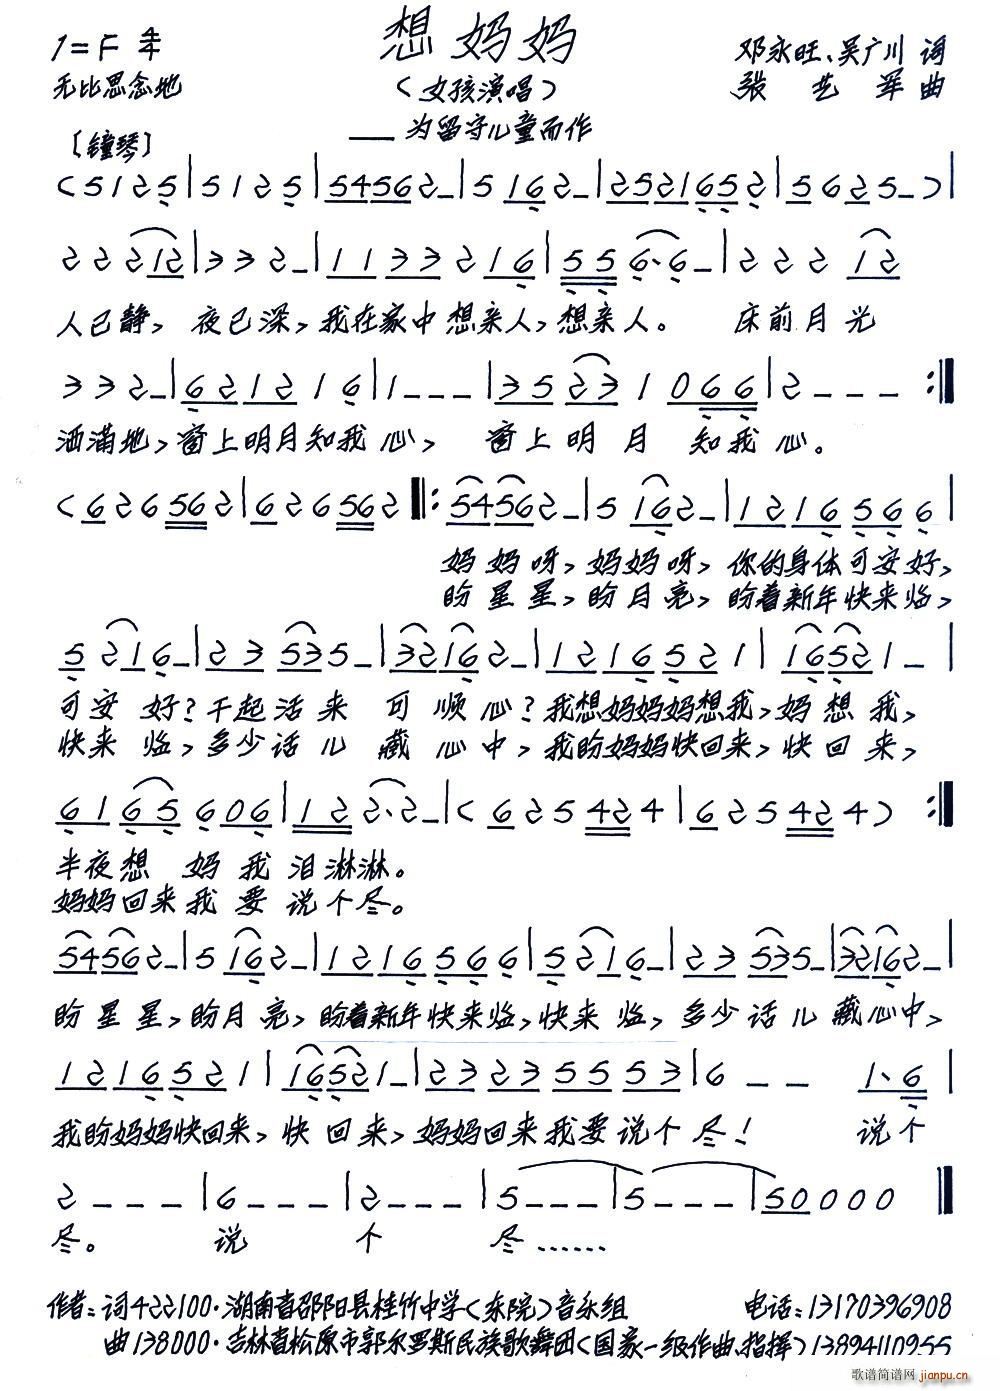 想妈妈
1=F 4/4
无比思念地
(女孩演唱)
邓永旺、吴广川 词
张艺军 曲
——为留守儿童而作
[钟琴]
(5 1 2 5|5 1 2 5|5456 2 -|5 16 2 -|252165 2|5 6 25 -)|
2 2 212|3 3 2 -|11 33 2 16|55 6·6 -|2 2 2 12
人已静，夜已深，我在家中想亲人，想亲人。 床前月光
3 3 2 -|62 12 1 6|1 - - -|35 23 1 066|2 - - - :‖
洒满地，窗上明月知我心， 窗上明月 知我心。
(6 2 6 562|6 2 6 562‖:5456 2 -|5 16 2 -|12 16 56 6|
妈妈呀，妈妈呀，你的身体可安好，
盼星星，盼月亮，盼着新年快来临，
5 216 -|23 535 -|3216 2 -|12 16 52 1|1652 1 -|
可安 好？千起活来 可 顺心？我想妈妈妈想我，妈想我，
快来 临，多少话儿 藏 心中，我盼妈妈快回来，快回来，
61 65 606|122 2·2 -|(6 2 5 424|6 2 5 424) :‖
半夜想 妈我泪淋淋。
妈妈回来我要说个尽。
5456 2 -|5 16 2 -|12 16 56 6|5 216 -|23 535 -|3216 2 -|
盼星星，盼月亮，盼着新年快来临，快来临，多少话儿藏心中，
12 16 52 1|1652 1 -|23 23 55 53|6 - - 1·6|
我盼妈妈快回来，快回来，妈妈回来我要说个尽！ 说个
2 - - -|6 - - -|2 - - -|5 - - -|5 - - -|50 0 0 0‖
尽。 说 个 尽……
作者：词422100·湖南省邵阳县桂竹中学(东院)音乐组 电话：13170396908
曲138000·吉林省松原市郭尔罗斯民族歌舞团(国家一级作曲、指挥)13894110955
歌谱简谱网 jianpu.cn